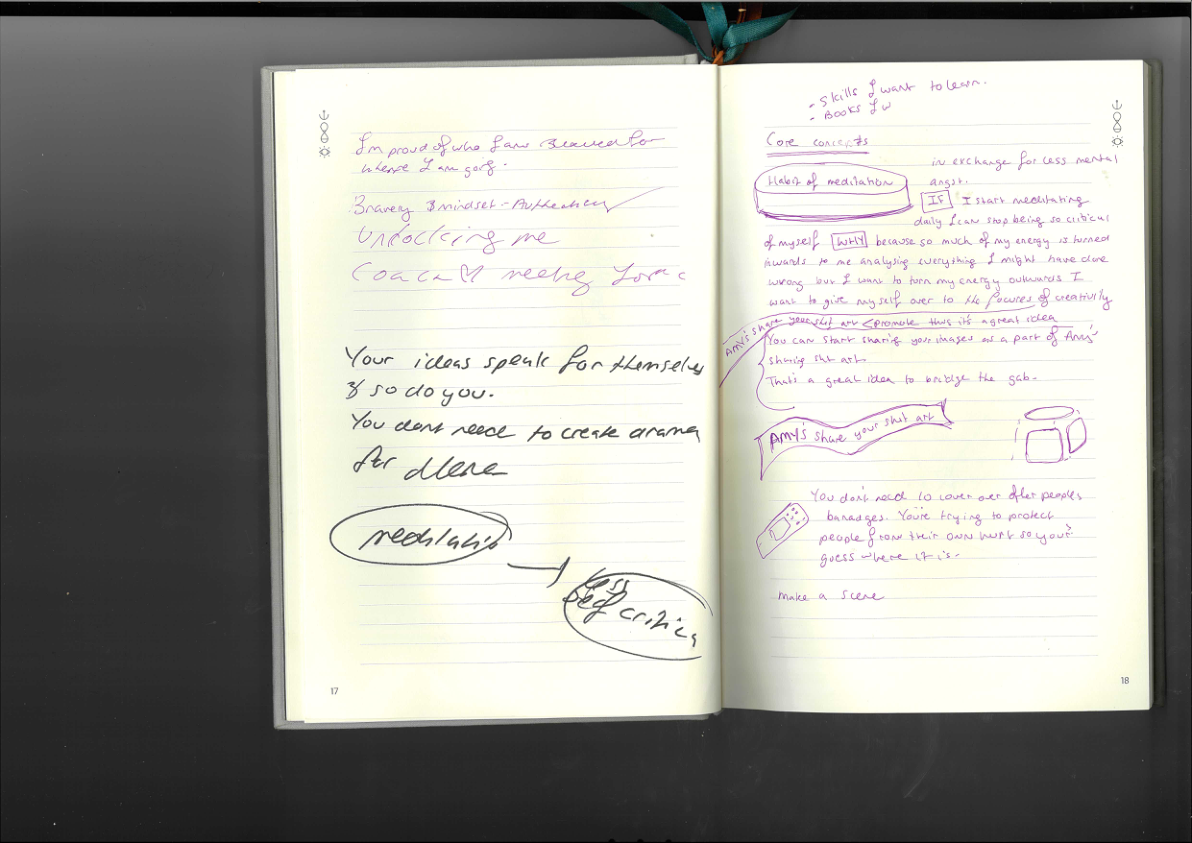 I'm proud of who I am & excited for
where I am going.
Bravery & mindset - Authenticity
Unlocking me
Coach meeting
Your ideas speak for themselves
& so do you.
You dont need to create drama
for
meditation
less
self critical
17
- Skills I want to learn.
- Books I w
Core concepts
in exchange for less mental
Habit of meditation
angst.
IF I start meditating
daily I can stop being so critical
of myself WHY because so much of my energy is turned
inwards to me analysing everything I might have done
wrong but I want to turn my energy outwards I
want to give myself over to the of creativity
AMY'S share your shit art < promote this it's a great idea
You can start sharing your images as a part of Amy's
sharing shit art.
That's a great idea to bridge the gab.
AMY'S share your shit art
You don't need to cover over other peoples
banadges. You're trying to protect
people from their own hurt so your
guess where it is.
Make a scene
18